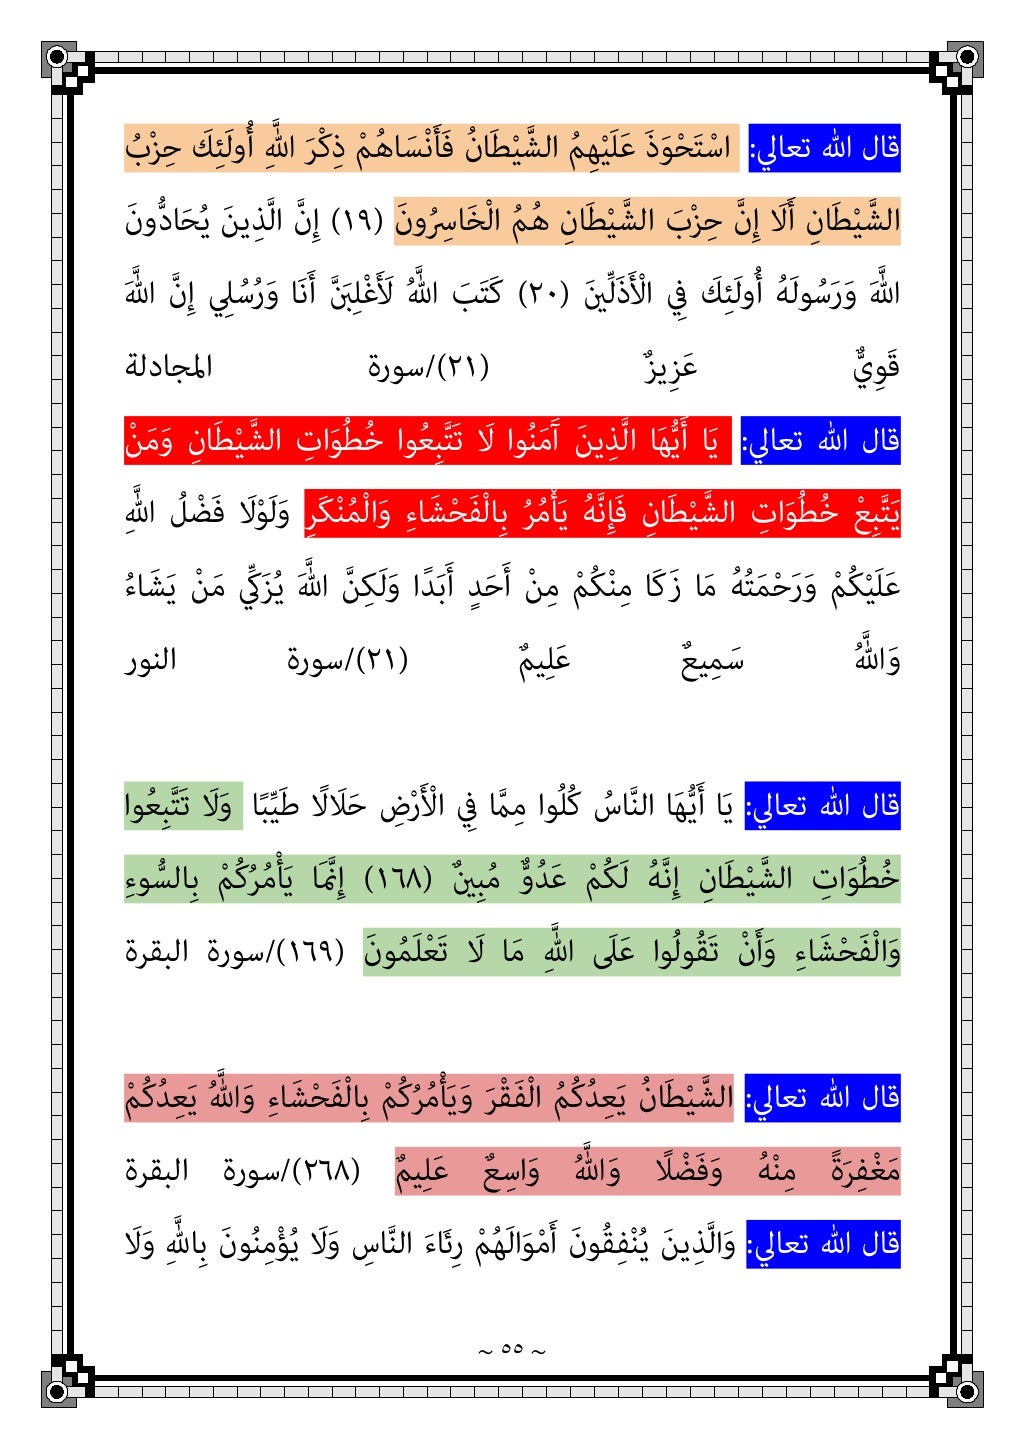 قال الله تعالي: اسْتَحْوَذَ عَلَيْهِمُ الشَّيْطَانُ فَأَنْسَاهُمْ ذِكْرَ اللَّهِ أُولَئِكَ حِزْبُ
الشَّيْطَانِ أَلَا إِنَّ حِزْبَ الشَّيْطَانِ هُمُ الْخَاسِرُونَ (١٩) إِنَّ الَّذِينَ يُحَادُّونَ
اللَّهَ وَرَسُولَهُ أُولَئِكَ فِي الْأَذَلِّينَ (٢٠) كَتَبَ اللَّهُ لَأَغْلِبَنَّ أَنَا وَرُسُلِي إِنَّ اللَّهَ
قَوِيٌّ عَزِيزٌ (٢١)/سورة المجادلة
قال الله تعالي: يَا أَيُّهَا الَّذِينَ آَمَنُوا لَا تَتَّبِعُوا خُطُوَاتِ الشَّيْطَانِ وَمَنْ
يَتَّبِعْ خُطُوَاتِ الشَّيْطَانِ فَإِنَّهُ يَأْمُرُ بِالْفَحْشَاءِ وَالْمُنْكَرِ وَلَوْلَا فَضْلُ اللَّهِ
عَلَيْكُمْ وَرَحْمَتُهُ مَا زَكَا مِنْكُمْ مِنْ أَحَدٍ أَبَدًا وَلَكِنَّ اللَّهَ يُزَكِّي مَنْ يَشَاءُ
وَاللَّهُ سَمِيعٌ عَلِيمٌ (٢١)/سورة النور
قال الله تعالي: يَا أَيُّهَا النَّاسُ كُلُوا مِمَّا فِي الْأَرْضِ حَلَالًا طَيِّبًا وَلَا تَتَّبِعُوا
خُطُوَاتِ الشَّيْطَانِ إِنَّهُ لَكُمْ عَدُوٌّ مُبِينٌ (١٦٨) إِنَّمَا يَأْمُرُكُمْ بِالسُّوءِ
وَالْفَحْشَاءِ وَأَنْ تَقُولُوا عَلَى اللَّهِ مَا لَا تَعْلَمُونَ (١٦٩)/سورة البقرة
قال الله تعالي: الشَّيْطَانُ يَعِدُكُمُ الْفَقْرَ وَيَأْمُرُكُمْ بِالْفَحْشَاءِ وَاللَّهُ يَعِدُكُمْ
مَغْفِرَةً مِنْهُ وَفَضْلًا وَاللَّهُ وَاسِعٌ عَلِيمٌ (٢٦٨)/سورة البقرة
قال الله تعالي: وَالَّذِينَ يُنْفِقُونَ أَمْوَالَهُمْ رِئَاءَ النَّاسِ وَلَا يُؤْمِنُونَ بِاللَّهِ وَلَا
~ ٥٥ ~